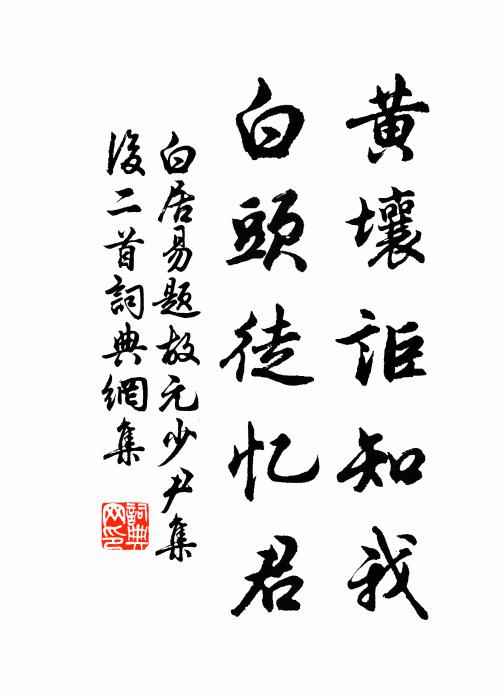 黄壤詎知我
白頭徒忆君
白居易題故元少尹集
後二首詞典網集
詞典
网印